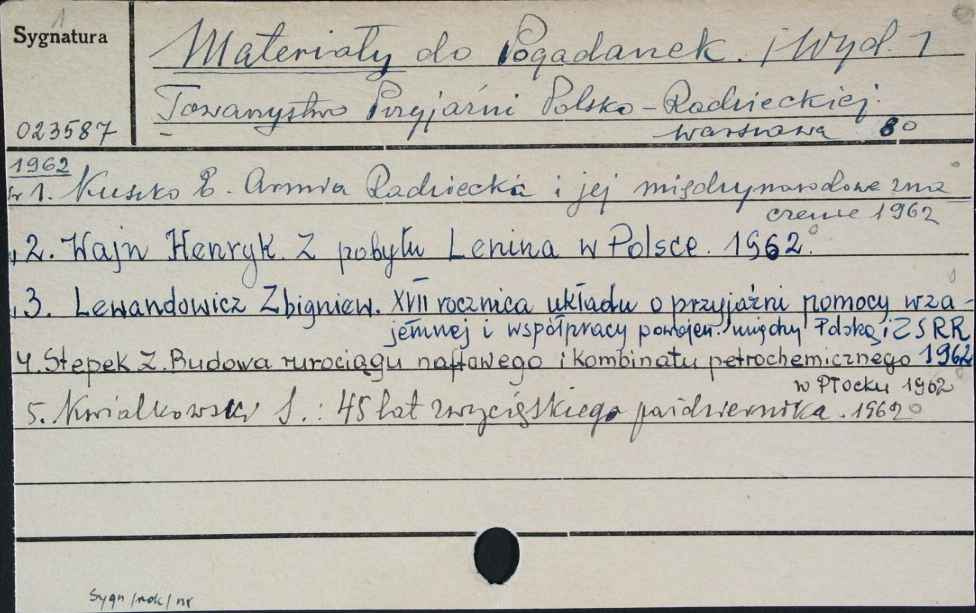 Sygnatura
1
Materiały do Pogadanek. / Wyd. 1
Towarzystwo Przyjaźni Polsko-Radzieckiej.
023587
Warszawa 8°
1962
nr 1. Kuszko E. Armia Radziecka i jej międzynarodowe zna
czenie 1962
2. Wajn Henryk. Z pobytu Lenina w Polsce. 1962
3. Lewandowicz Zbigniew. XVII rocznica układu o przyjaźni pomocy wza-
jemnej i współpracy powojen. między Polską i ZSRR
4. Stepek Z. Budowa rurociągu naftowego i Kombinatu petrochemicznego 1962
w Płocku 1962
5. Kwiatkowski S.: 45 lat zwycięskiego października. 1962
Sygn/rok/nr